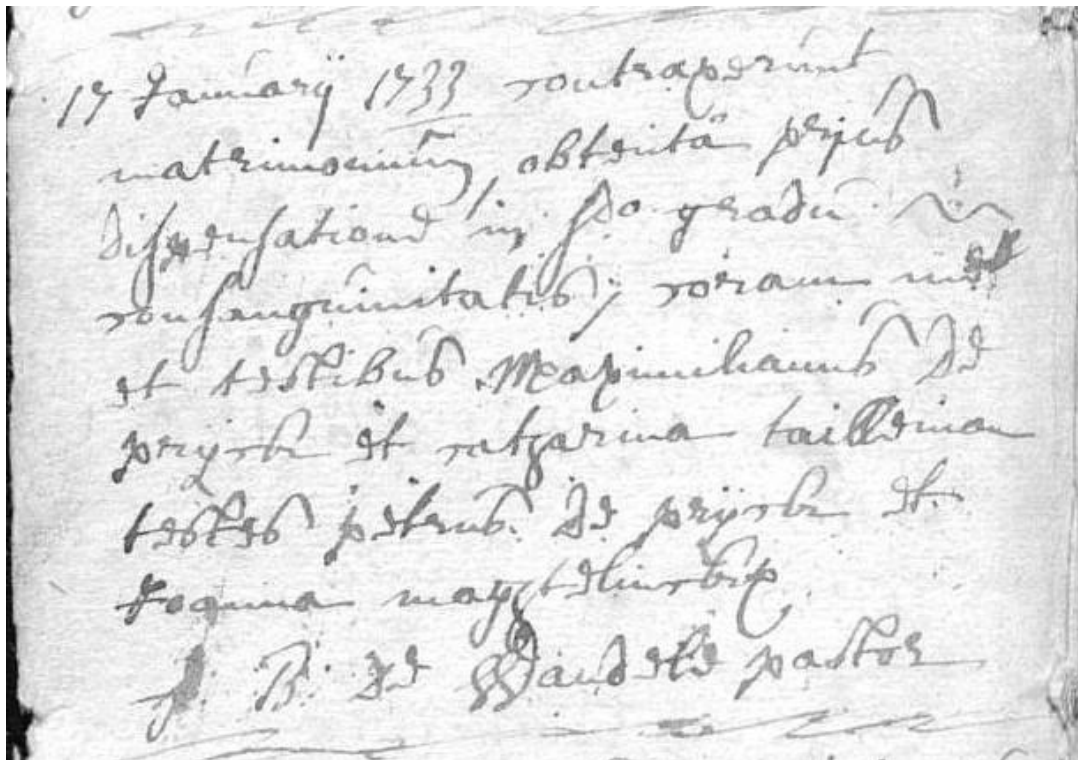 17 Januarij 1733 contraxerunt
matrimonium, obtenta prius
dispensatione in 3io gradu
consanguinitatis, coram me
et testibus Maximilianus de
prijck et catharina tailleman
testes petrus de prijck et
Joanna
J. B. de Wandele pastor